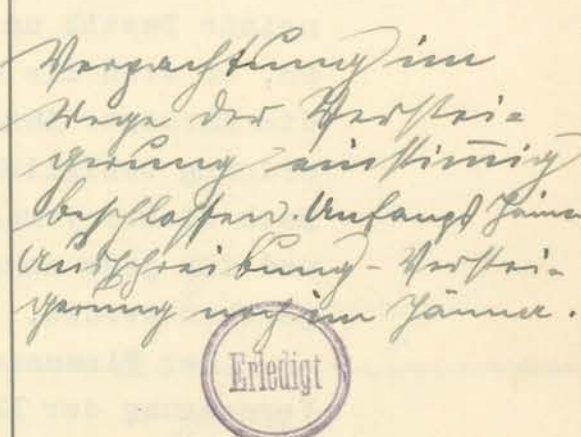 Verpachtung im
Wege der Verstei-
gerung einstim̄ig
beschlossen. Anfangs Jänner
Ausschreibung - Verstei-
gerung noch im Jänner.
Erledigt